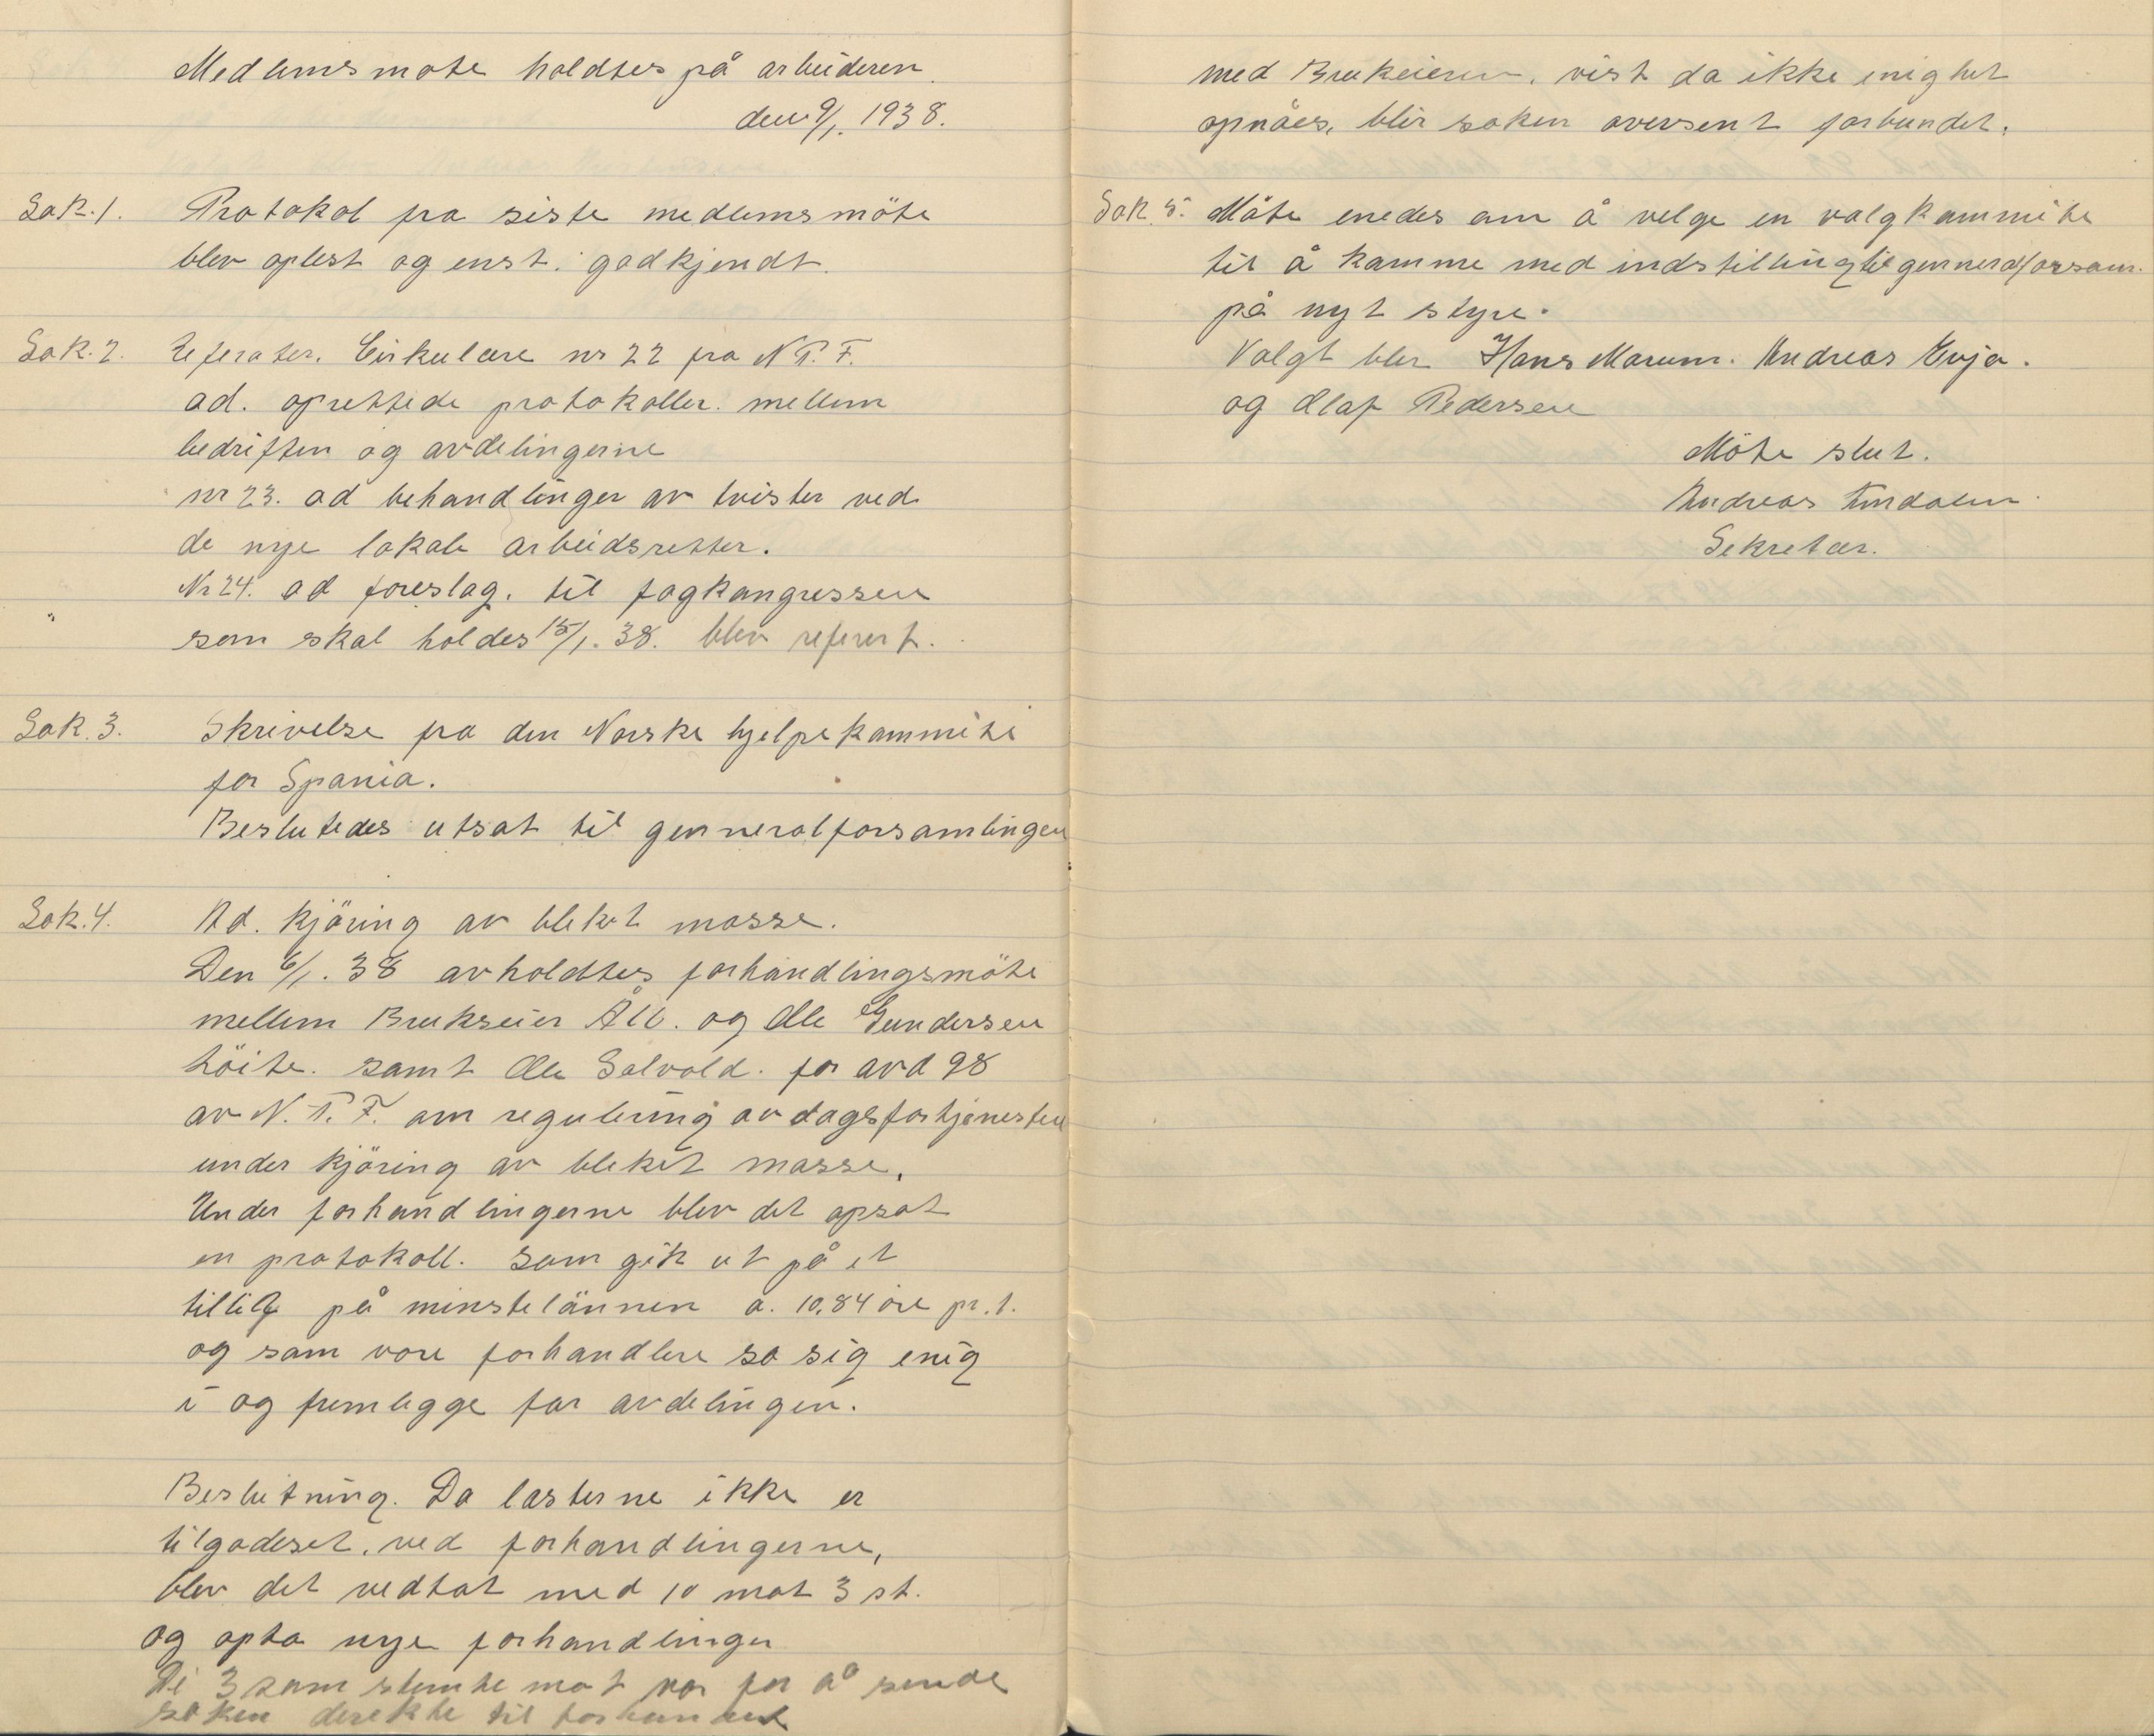 Medlemsmøte holdtes på arbeideren.
den 9/1. 1938.
Sak. 1. Protokol fra siste medlemsmöte
blev oplest og enst. godkjendt.
Sak. 2. Referater. Cirkulære nr 22 fra N.P.F.
ad. oprettede protokoller. mellem
bedriften og avdelingerne
nr 23. ad behandlinger av tvister ved
de nye lokale arbeidsretter.
Nr 24. ad foreslag. til fagkongressen
som skal holdes 15/1. 38. blev referert.
Sak. 3. Skrivelse fra den Norske hjelpekommite
for Spania.
Beslutedes utsat til genneralforsamlingen
Sak. 4. Ad. Kjöring av bleket masse.
Den 6/1. 38 avholdtes forhandlingsmöte
mellem Brukseier og Ole Gundersen
samt Ole Solvold. for avd 98
av N.P.F. om regulering av dagsfortjenesten
under kjöring av bleket masse.
Under forhandlingerne blev det opsat
en protokoll. som gik ut på et
tilleg på minstelönnen a. 10,84 öre pr. t.
og som vore forhandlere sa sig enig
i og fremlegge for avdelingen.
Beslutning. Da lasterne ikke er
tilgodeset. ved forhandlingerne,
blev det vedtat med 10 mot 3 st.
og opta nye forhandlinger
De 3 som stemte mot var for å sende
saken derekte til forbundet
med Brukeieren. vist da ikke enighet
opnåes, blir saken oversent forbundet.
Sak 5. Möte enedes om å velge en valgkommite
til å komme med indstilling til genneralforsam.
på nyt styre.
Valgt blev Hans Marum. Andreas Evja.
og Olaf Pedersen
Möte slut.
Andreas
Sekretær.